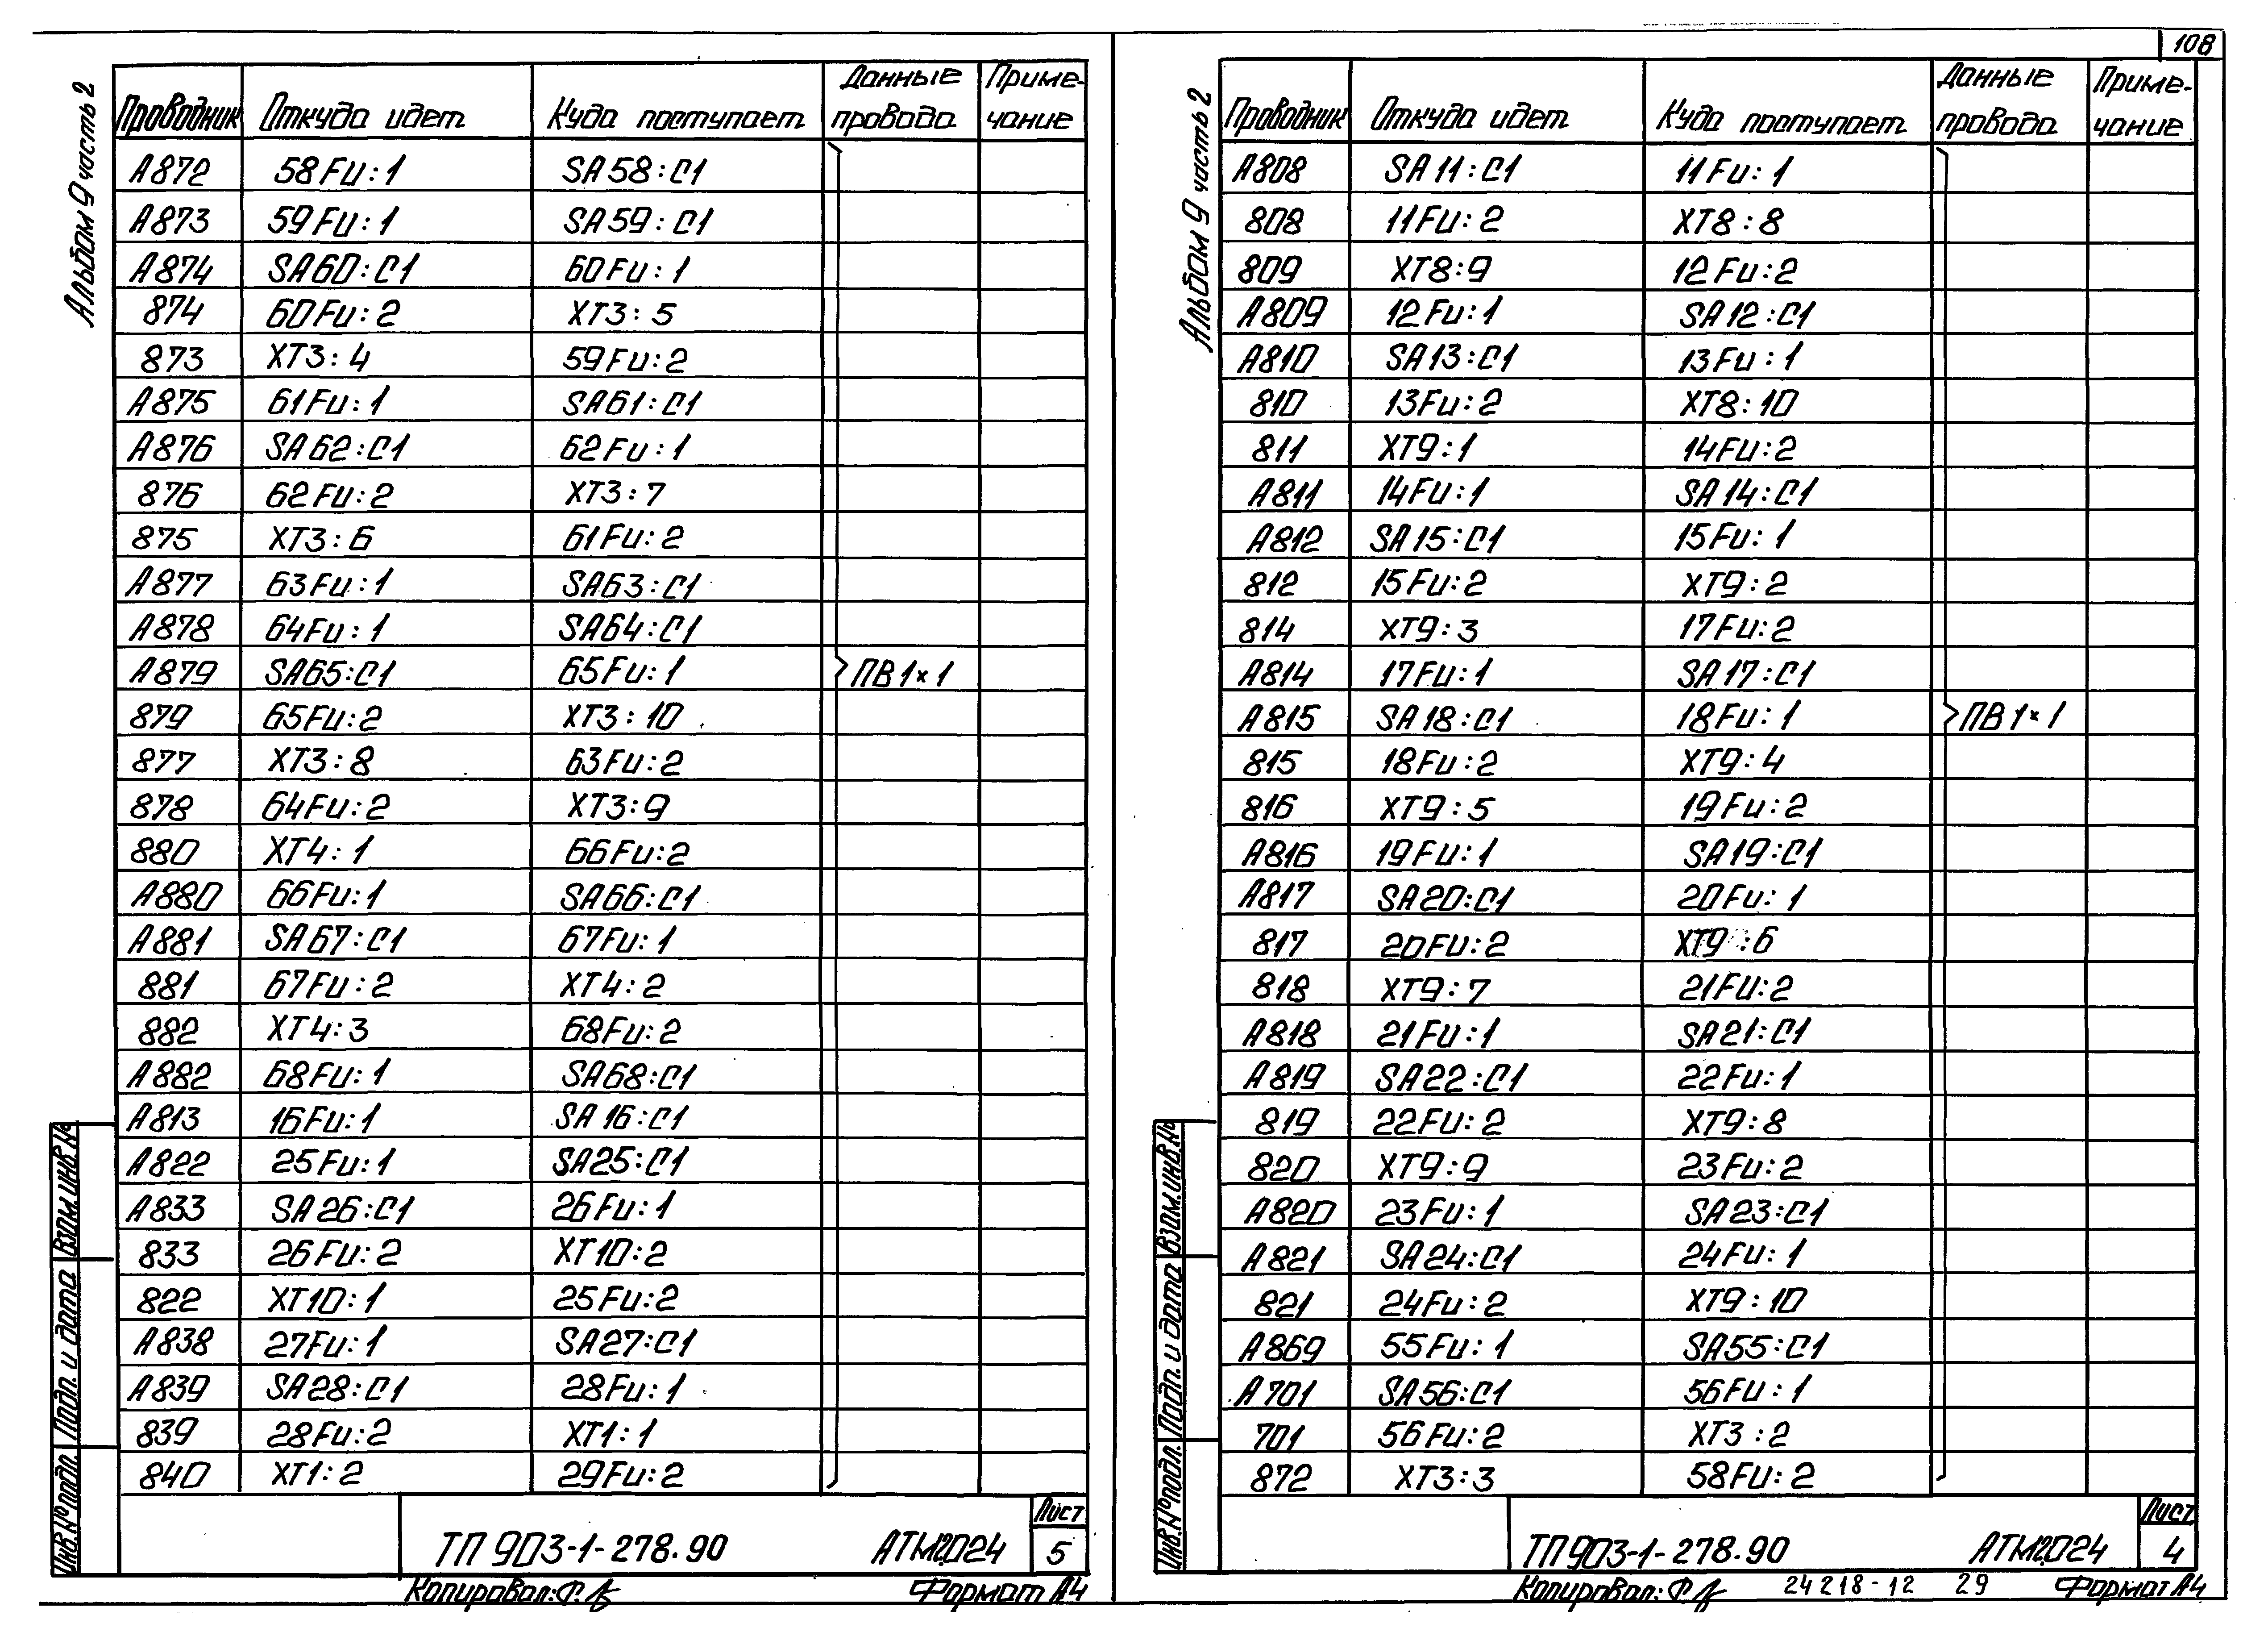 108
Альбом 9 часть 2
Проводник Откуда идет Куда поступает Данные провода Приме-чание
А872 58Fu:1 SA58:С1
А873 59Fu:1 SA59:С1
А874 SA60:С1 60Fu:1
874 60Fu:2 ХТ3:5
873 ХТ3:4 59Fu:2
А875 61Fu:1 SA61:С1
А876 SA62:С1 62Fu:1
876 62Fu:2 ХТ3:7
875 ХТ3:6 61Fu:2
А877 63Fu:1 SA63:С1
А878 64Fu:1 SA64:С1
А879 SA65:С1 65Fu:1 ПВ 1×1
879 65Fu:2 ХТ3:10
877 ХТ3:8 63Fu:2
878 64Fu:2 ХТ3:9
880 ХТ4:1 66Fu:2
А880 66Fu:1 SA66:С1
А881 SA67:С1 67Fu:1
881 67Fu:2 ХТ4:2
882 ХТ4:3 68Fu:2
А882 68Fu:1 SA68:С1
А813 16Fu:1 SA16:С1
А822 25Fu:1 SA25:С1
А833 SA26:С1 26Fu:1
833 26Fu:2 ХТ10:2
822 ХТ10:1 25Fu:2
А838 27Fu:1 SA27:С1
А839 SA28:С1 28Fu:1
839 28Fu:2 ХТ1:1
840 ХТ1:2 29Fu:2
Взам.инв.№
Подп. и дата
Инв.№подл.
ТП 903-1-278.90 АТМ2.024 Лист 5
Копировал: Формат А4
Альбом 9 часть 2
Проводник Откуда идет Куда поступает Данные провода Приме-чание
А808 SA11:С1 11Fu:1
808 11Fu:2 ХТ8:8
809 ХТ8:9 12Fu:2
А809 12Fu:1 SA12:С1
А810 SA13:С1 13Fu:1
810 13Fu:2 ХТ8:10
811 ХТ9:1 14Fu:2
А811 14Fu:1 SA14:С1
А812 SA15:С1 15Fu:1
812 15Fu:2 ХТ9:2
814 ХТ9:3 17Fu:2
А814 17Fu:1 SA17:С1
А815 SA18:С1 18Fu:1 ПВ 1×1
815 18Fu:2 ХТ9:4
816 ХТ9:5 19Fu:2
А816 19Fu:1 SA19:С1
А817 SA20:С1 20Fu:1
817 20Fu:2 ХТ9:6
818 ХТ9:7 21Fu:2
А818 21Fu:1 SA21:С1
А819 SA22:С1 22Fu:1
819 22Fu:2 ХТ9:8
820 ХТ9:9 23Fu:2
А820 23Fu:1 SA23:С1
А821 SA24:С1 24Fu:1
821 24Fu:2 ХТ9:10
А869 55Fu:1 SA55:С1
А701 SA56:С1 56Fu:1
701 56Fu:2 ХТ3:2
872 ХТ3:3 58Fu:2
Взам.инв.№
Подп. и дата
Инв.№подл.
ТП 903-1-278.90 АТМ2.024 Лист 4
Копировал: 24218-12 29 Формат А4